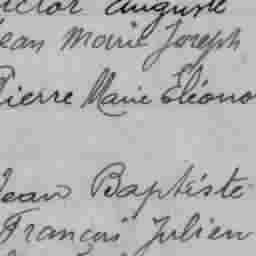 ictor Auguste
Jean Marie Joseph
Pierre Marie Eléono
Jean Baptiste
François Julien